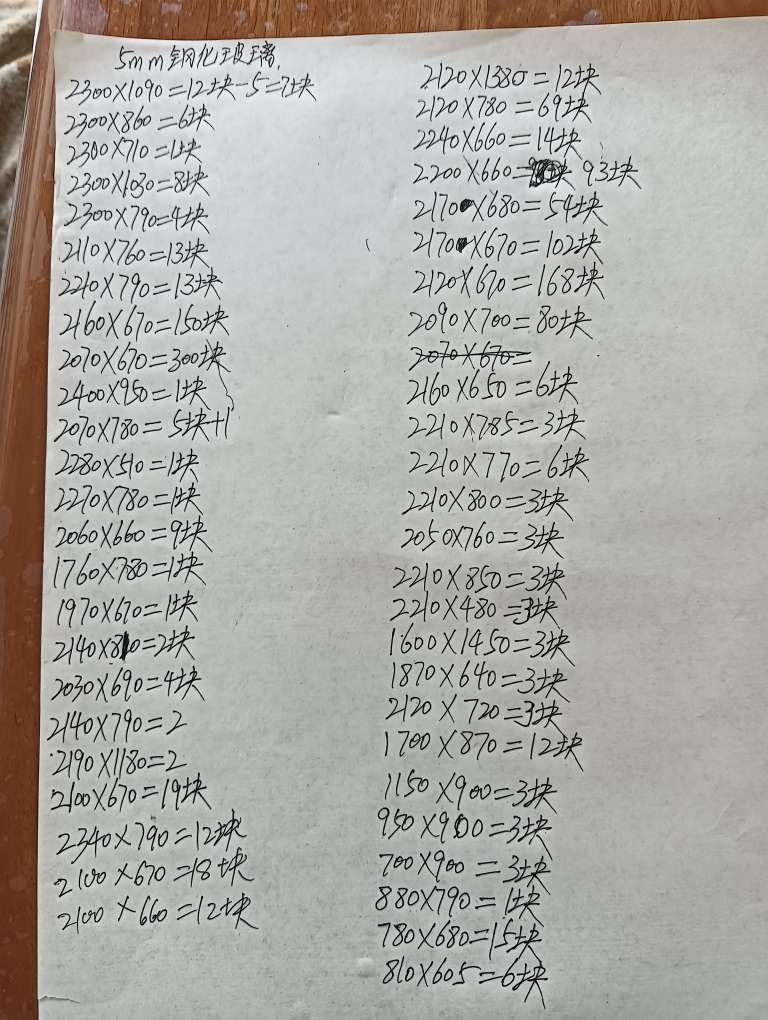 5mm钢化玻璃.
2300×1090=12块-5=7块
2300×860=6块
2300×710=1块
2300×1030=8块
2300×790=4块
2110×760=13块
2210×790=13块
2160×670=150块
2070×670=300块
2400×950=1块
2070×780=5块+1
2280×510=1块
2270×780=1块
2060×660=9块
1760×780=1块
1970×670=1块
2140×810=2块
2030×690=4块
2140×790=2
2190×1180=2
2100×670=19块
2340×790=12块
2100×670=18块
2100×660=12块
2120×1380=12块
2120×780=69块
2240×660=14块
2200×660= 93块
2170×680=54块
2170×670=102块
2120×670=168块
2090×700=80块
2070×670=
2160×650=6块
2210×785=3块
2210×770=6块
2210×800=3块
2050×760=3块
2210×850=3块
2210×480=3块
1600×1450=3块
1870×640=3块
2120×720=3块
1700×870=12块
1150×900=3块
950×900=3块
700×900=3块
880×790=1块
780×680=15块
810×605=6块